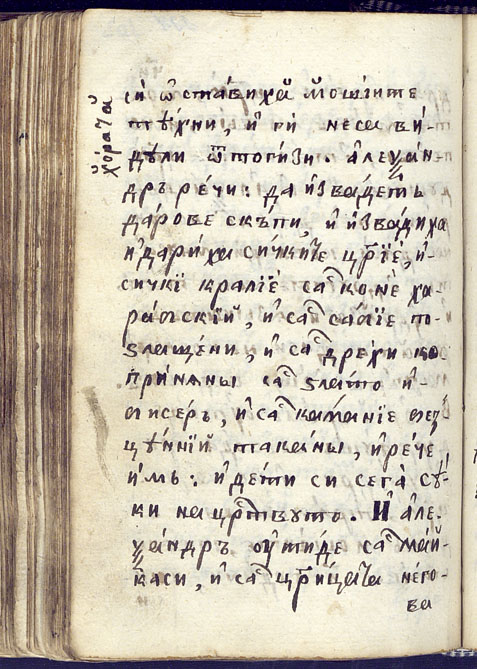 си ѿставиха мощите
тѣхни, и ги неса ви-
дѣли ѿтогизи. алеѯан-
дръ речи: да извадетъ
дарове скѣпи, и извадиха
и дариха сичките цр҃їе, и-
сички кралїе са коне ха-
рапскїй, и са сабїе по-
злащени, и са дрехи ко-
приняны са злато и-
бисеръ, и са каманїе без-
цѣннїй таканы, и рече
имъ: идети си сега сѣ-
ки на цр҃твуто. И але-
ѯандръ ѹтиде са май-
каси, и са цр҃ицата него-
ва